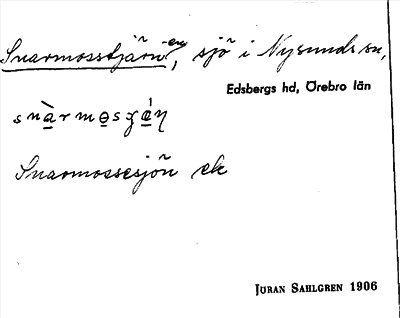 Snarmosstjärnen, sjö i Nysunds sn,
Edsbergs hd, Örebro län
Snarmossesjön ek
JURAN SAHLGREN 1906